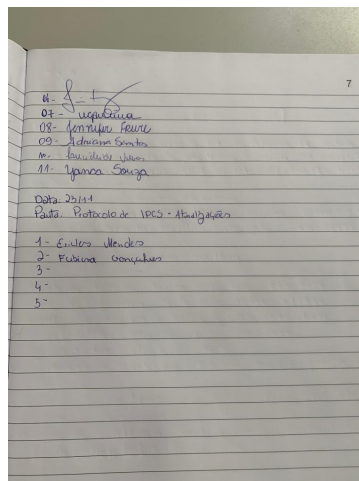 7
06-
07-
08- Jennifer Freire
09- Adriana Santos
10-
11- Yanca Souza
Data: 23/11
Pauta: Protocolo de IPCS - Atualizações
1- Mendes
2- Fabiana Gonçalves
3-
4-
5-